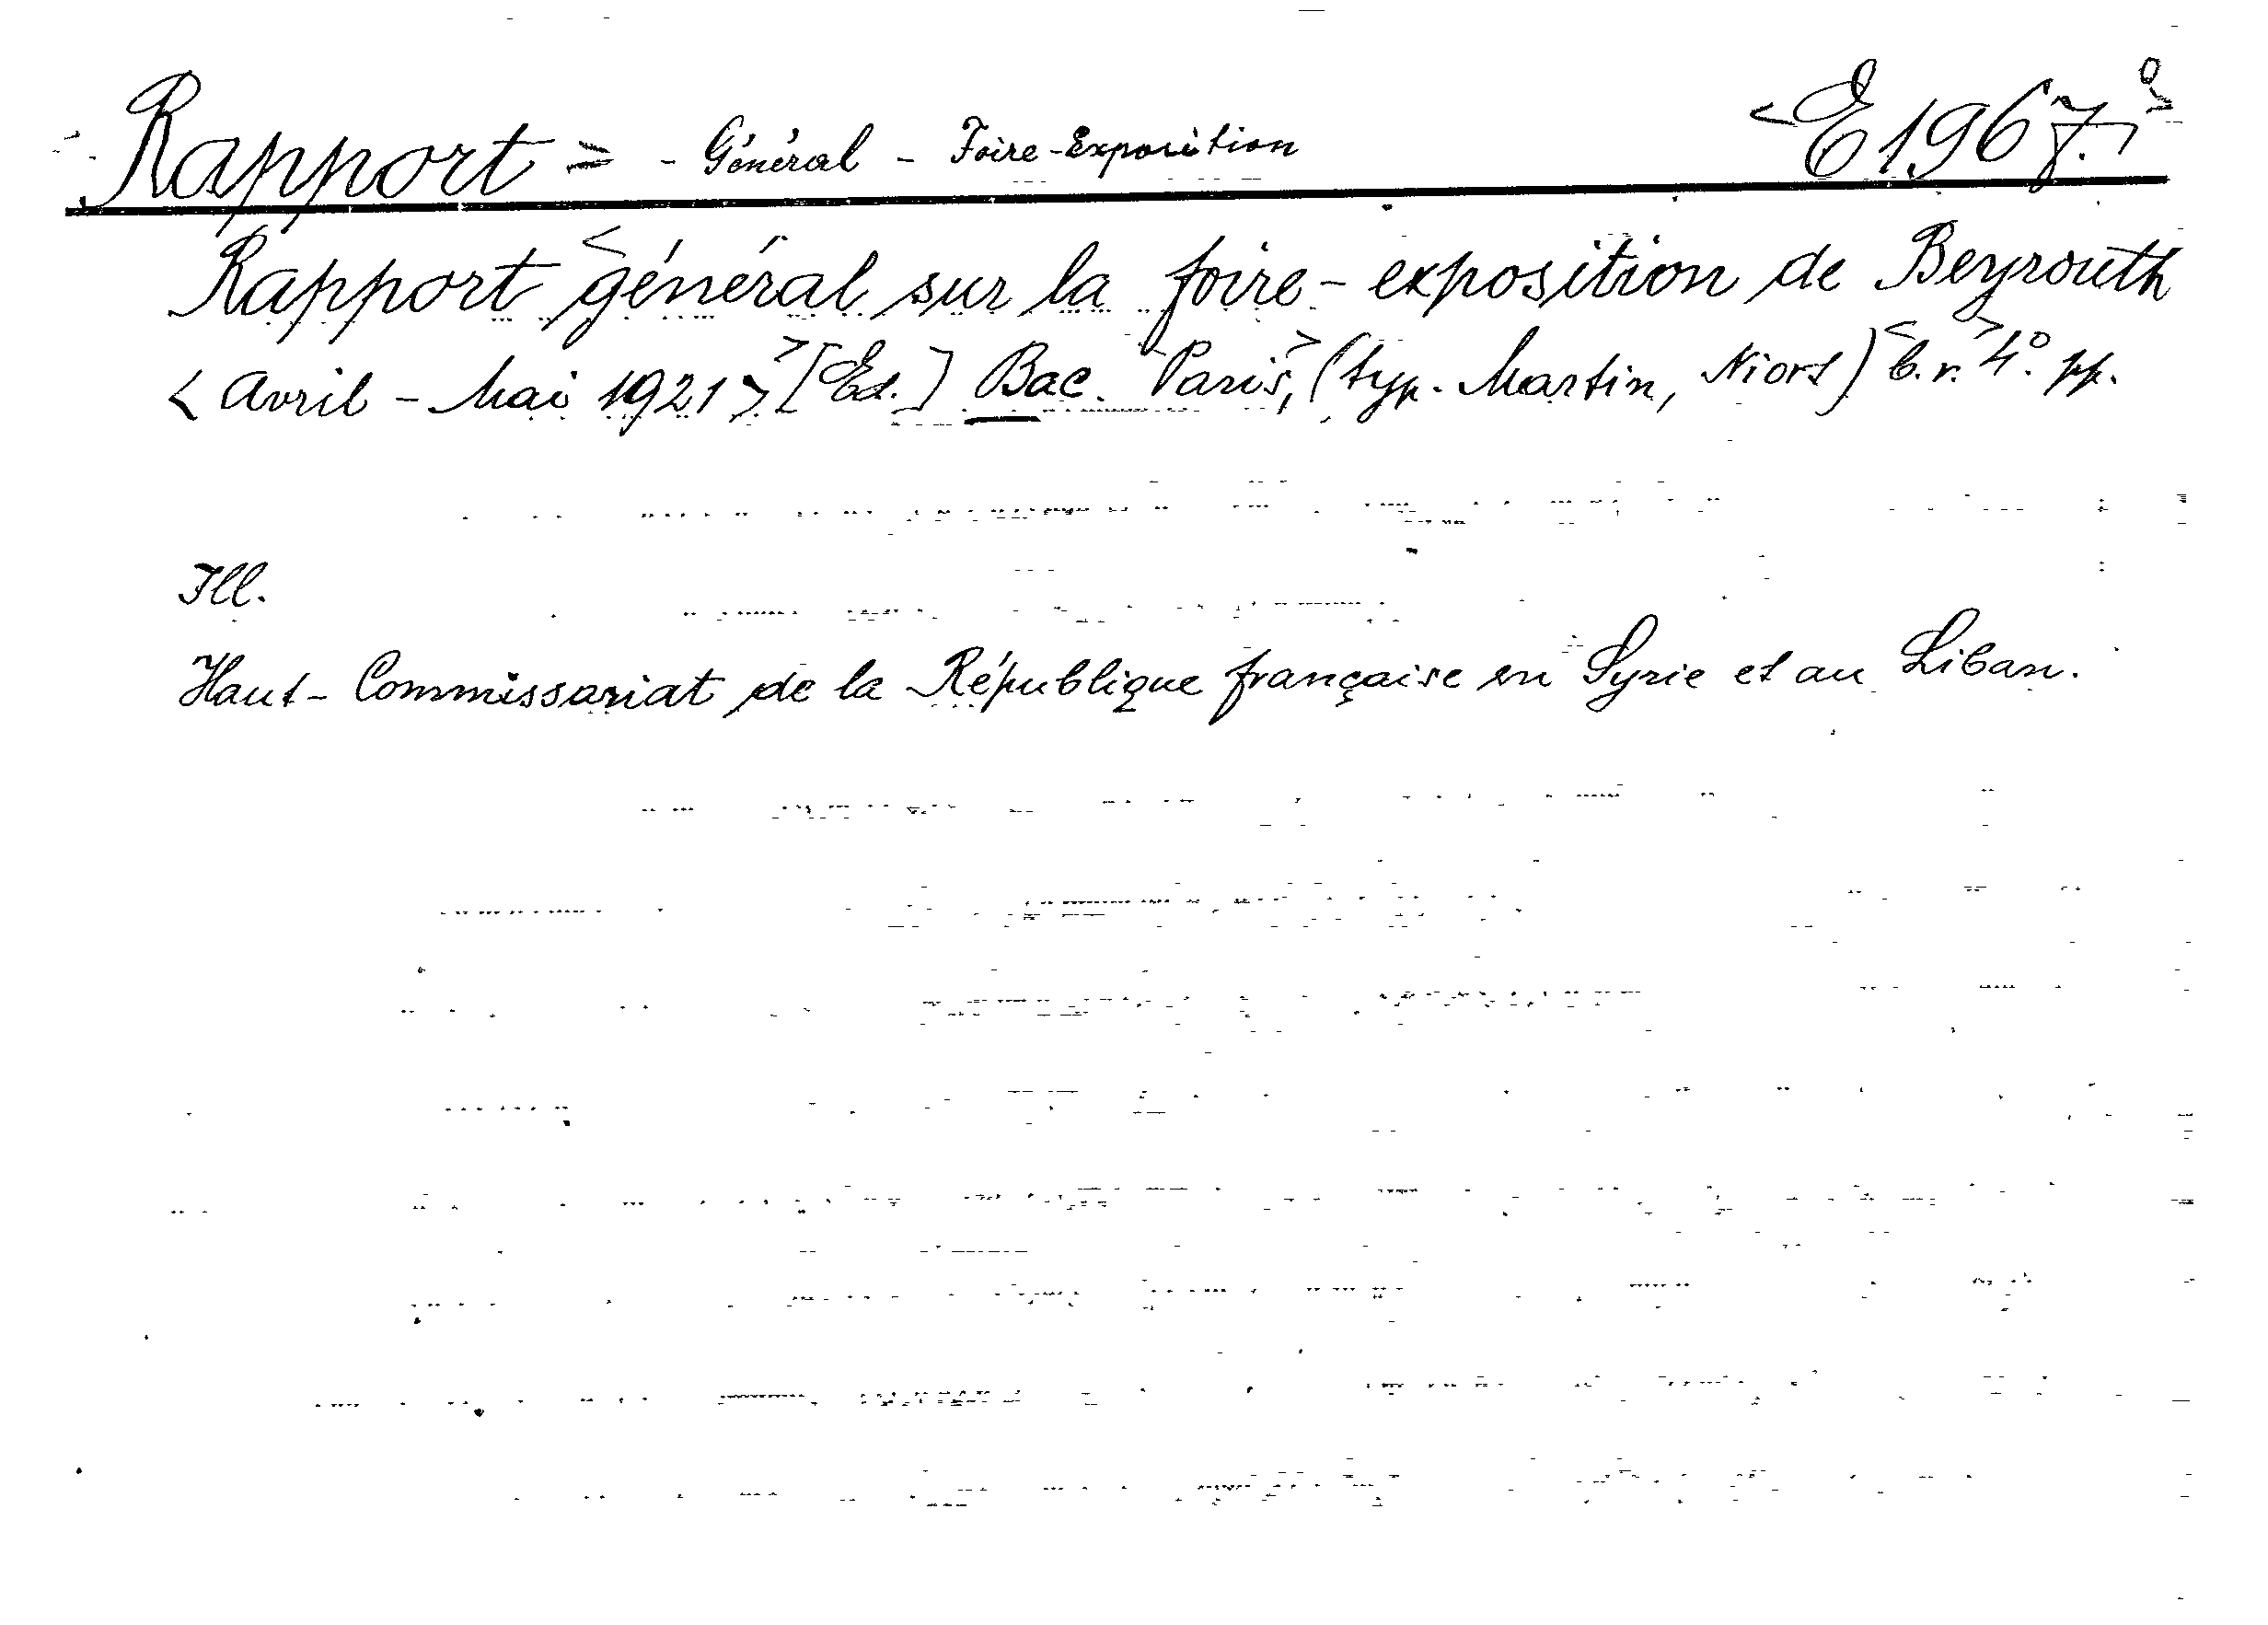 Rapport = - Général - Foire-Exposition <E 1967.°>
Rapport <général sur la foire-exposition de Beyrouth
<Avril - Mai 1921>> [Ed.] Bac. Paris,> (typ. Martin, Niort) <b. r.> 4°. pp.
Ill.
Haut-Commissariat de la République française en Syrie et au Liban.